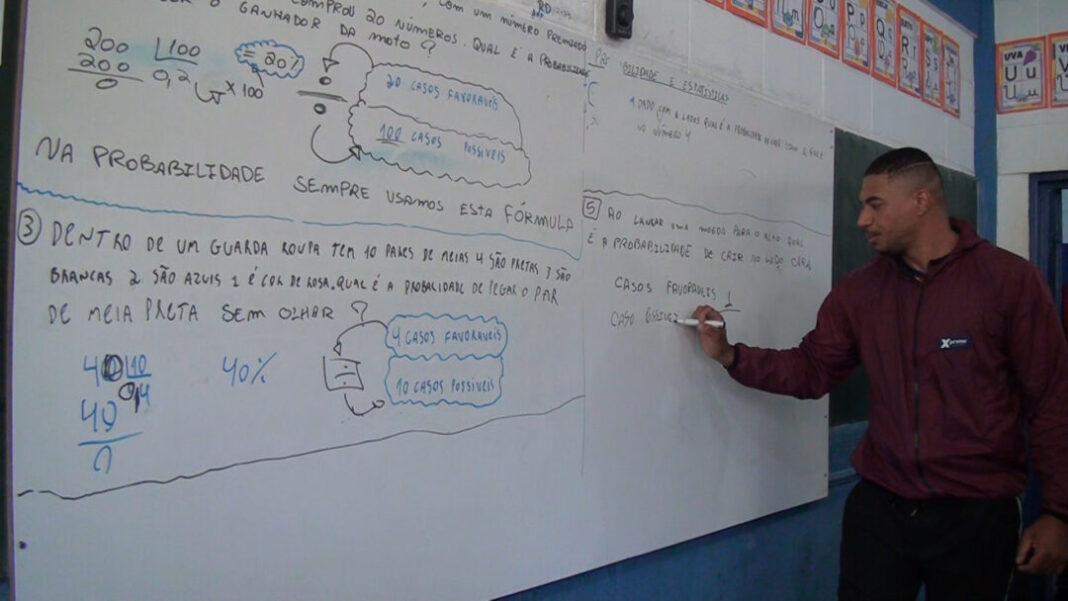 COMPROU 20 NÚMEROS. QUAL É A PROBABILIDADE
COM UM NÚMERO PREMIADO
O GANHADOR DA MOTO ?
200 100
200 0,2 × 100
0
= 20%
÷
20 CASOS FAVORÁVEIS
100 CASOS POSSÍVEIS
NA PROBABILIDADE SEMPRE USAMOS ESTA FÓRMULA
3 DENTRO DE UM GUARDA ROUPA TEM 10 PARES DE MEIAS 4 SÃO PRETAS 3 SÃO
BRANCAS 2 SÃO AZUIS 1 É COR DE ROSA. QUAL É A PROBALIDADE DE PEGAR O PAR
DE MEIA PRETA SEM OLHAR ?
40 10
40 0,4
0
40%
÷
4 CASOS FAVORÁVEIS
10 CASOS POSSÍVEIS
BILIDADE E ESTATÍSTICAS
1 DADO COM 6 LADOS QUAL É A PROBABILIDADE
NO NÚMERO 4
5 AO LANÇAR UMA MOEDA PARA O ALTO QUAL
É A PROBABILIDADE DE CAIR NO LADO CARA
CASOS FAVORAVEIS 1
CASO
UVA
U u